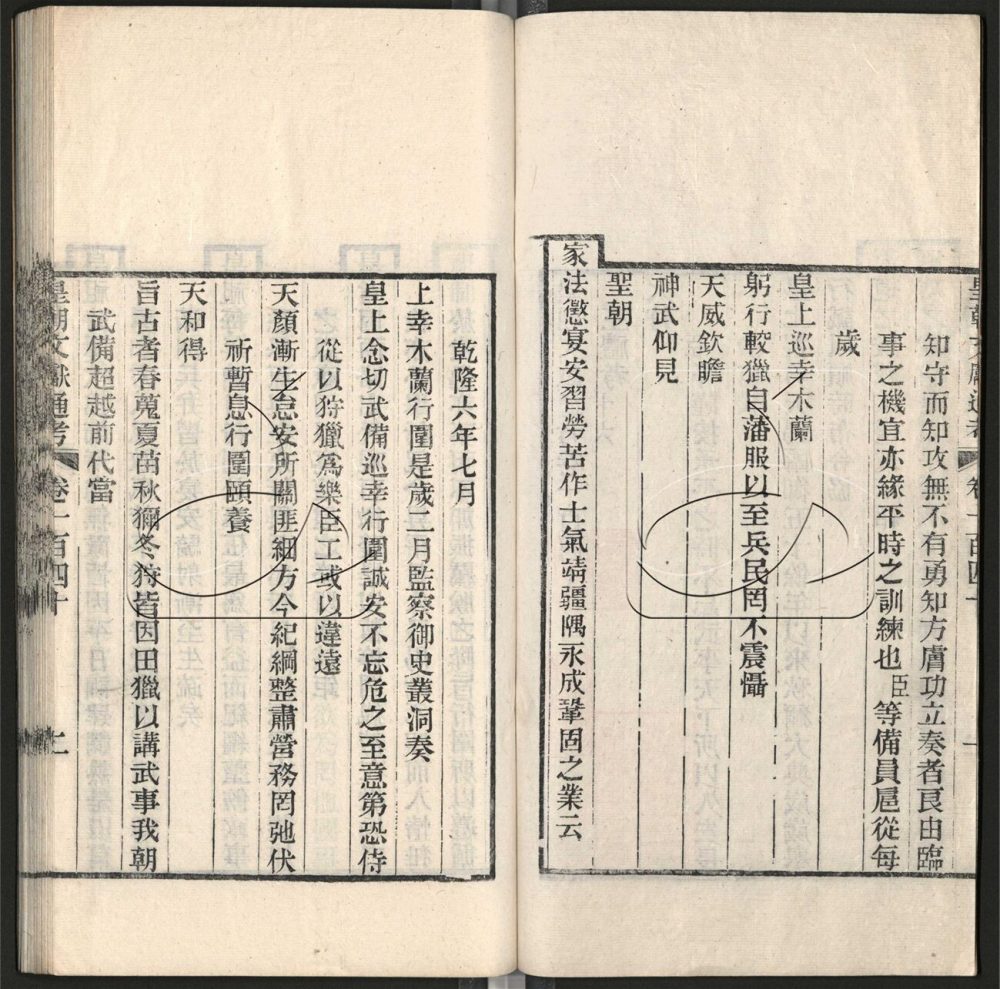 知守而知攻無不有勇知方膚功立奏者良由臨
事之機宜亦緣平時之訓練也臣等備員扈從每
歲
皇上巡幸木蘭
躬行較獵自藩服以至兵民罔不震懾
天威欽瞻
神武仰見
聖朝
家法懲宴安習勞苦作士氣靖疆隅永成鞏固之業云
乾隆六年七月
上幸木蘭行圍是歲二月監察御史叢洞奏
皇上念切武備巡幸行圍誠安不忘危之至意第恐侍
從以狩獵爲樂臣工或以違遠
天顏漸生怠安所關匪細方今紀綱整肅營務罔弛伏
祈暫息行圍頤養
天和得
旨古者春蒐夏苗秋獮冬狩皆因田獵以講武事我朝
武備超越前代當
皇朝文獻通考 卷一百四十 二